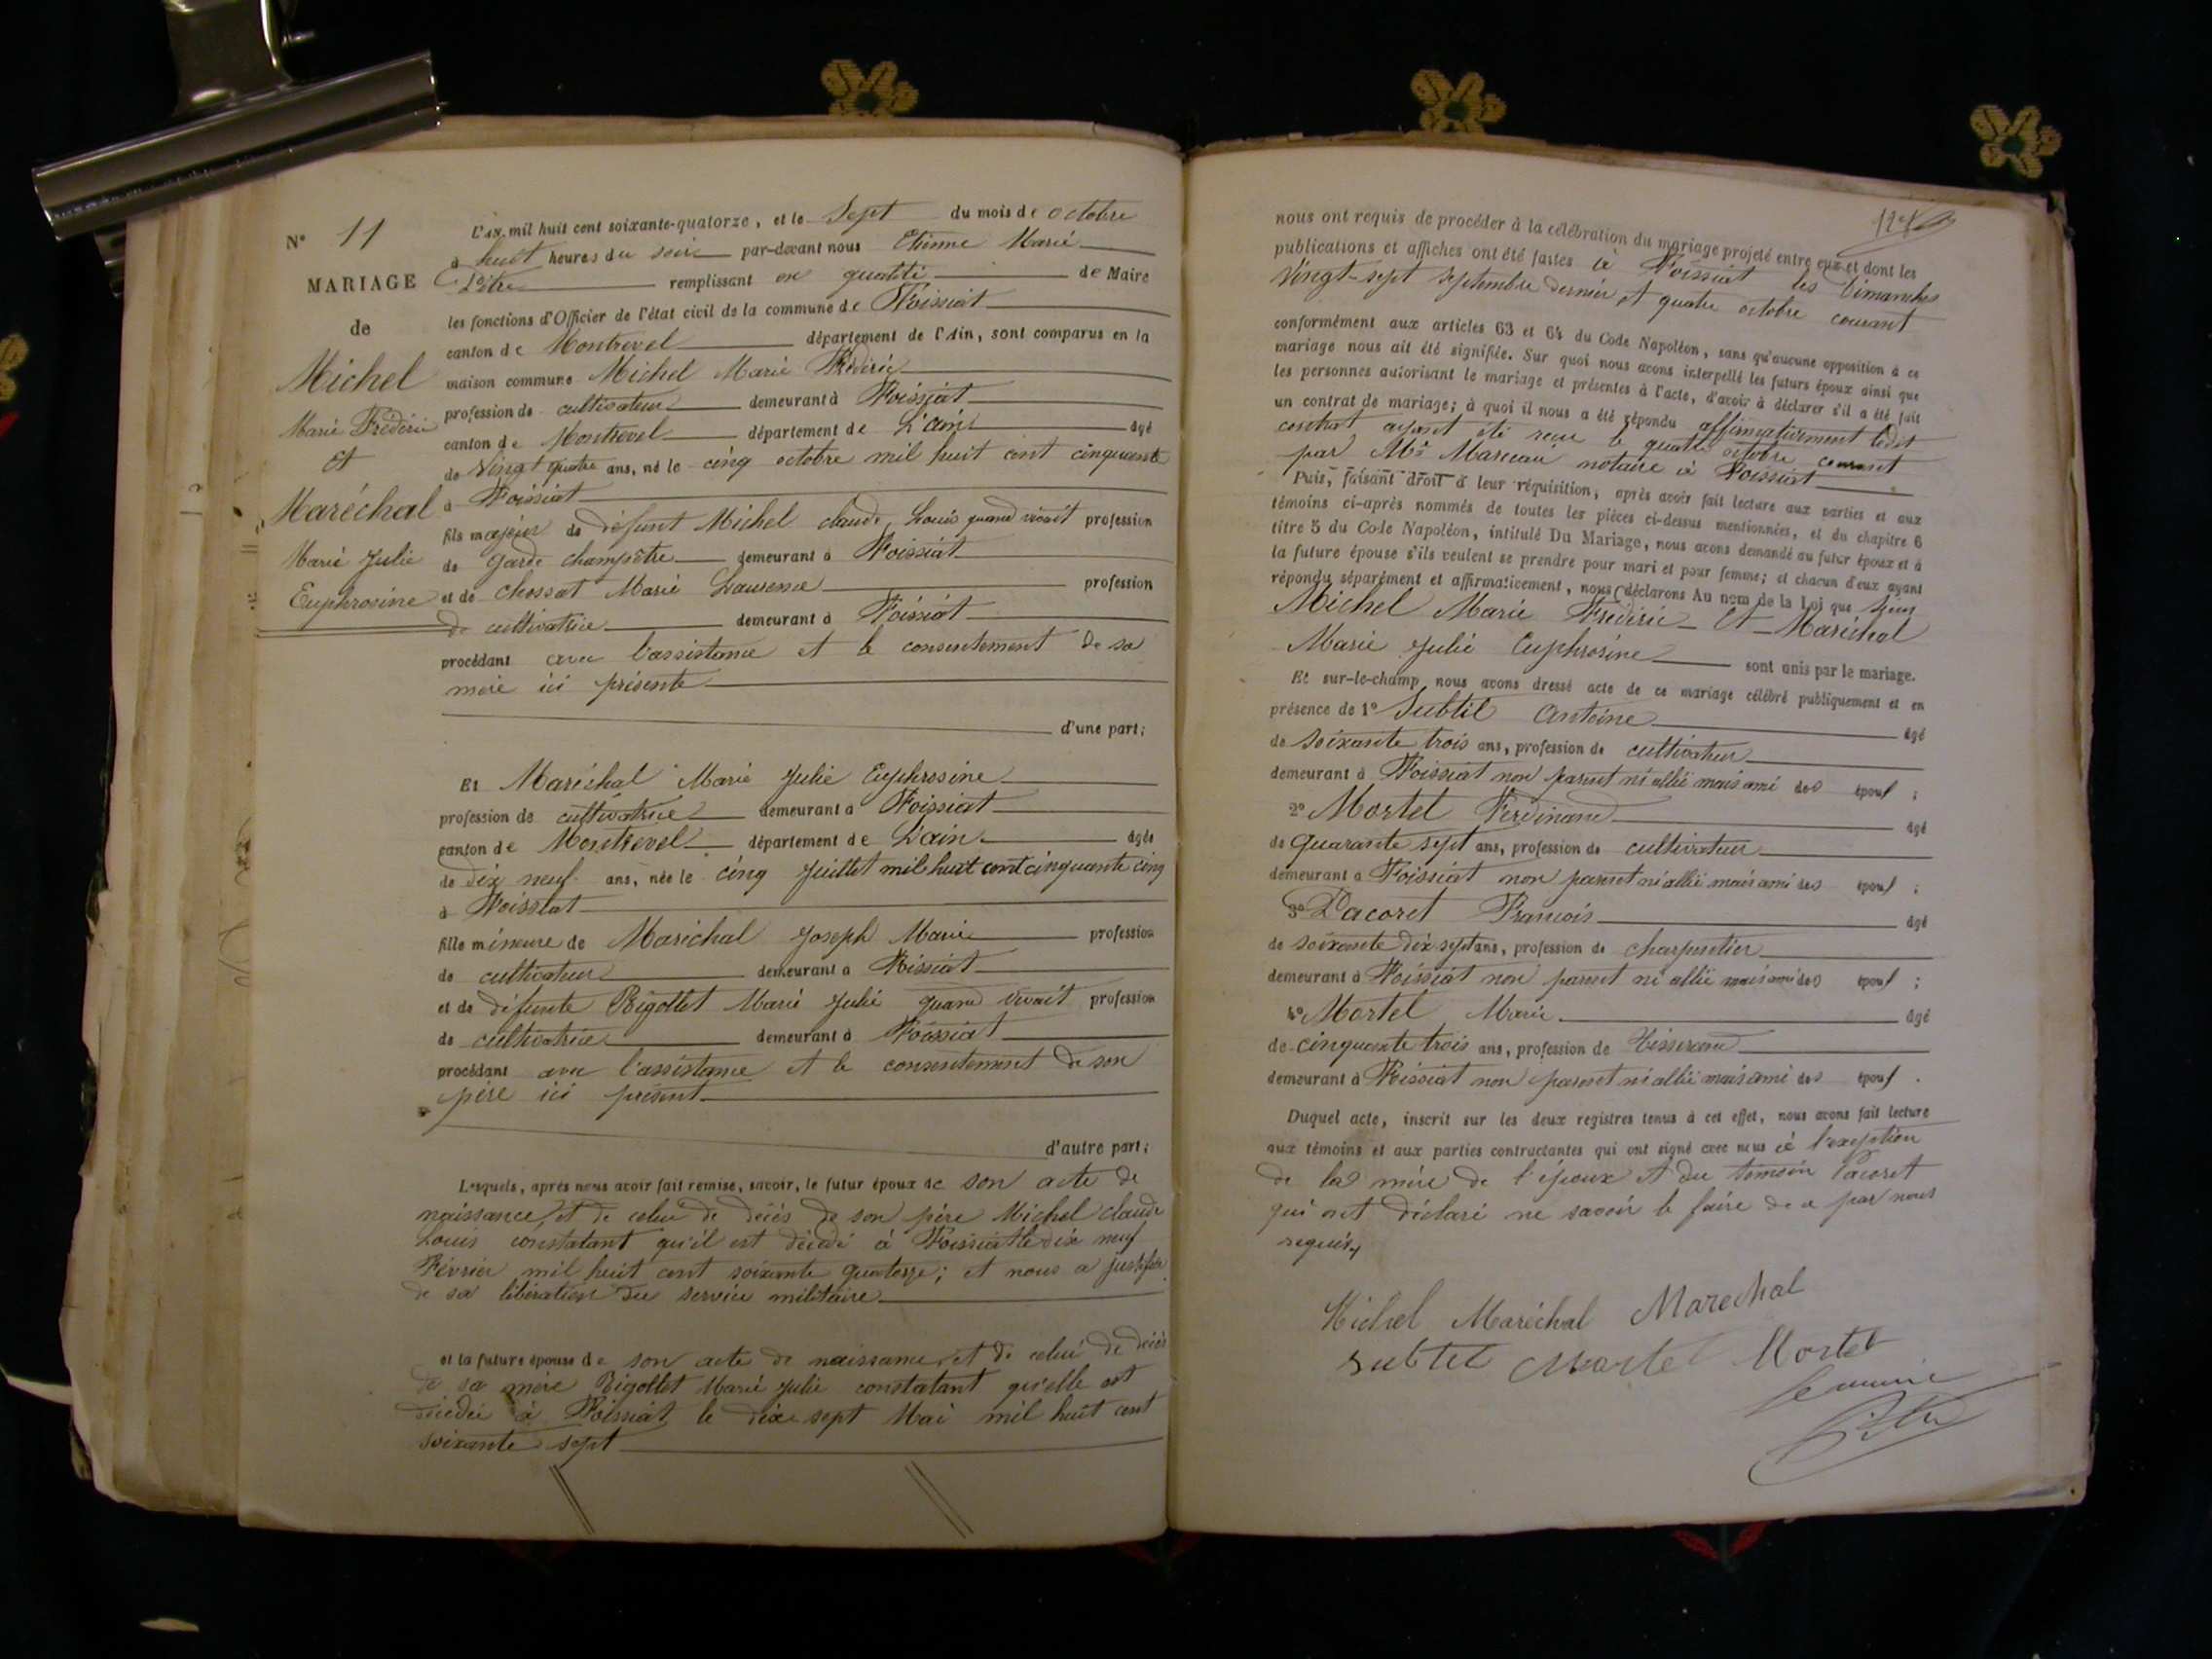 N° 11
MARIAGE
de
Michel
Marie Frédéric
et
Maréchal
Marie Julie
Euphrosine
L'an mil huit cent soixante-quatorze, et le Sept du mois de octobre
à huit heures du soir par-devant nous Etienne Marié
Pitre remplissant en qualité de Maire
les fonctions d'Officier de l'état civil de la commune de Foissiat
canton de Montrevel département de l'Ain, sont comparus en la
maison commune Michel Marie Frédéric
profession de cultivateur demeurant à Foissiat
canton de Montrevel département de L'ain âgé
de Vingt quatre ans, né le cinq octobre mil huit cent cinquante
à Foissiat
fils majeur de défunt Michel claude Louis quand vivait profession
de garde champêtre demeurant à Foissiat
et de Chossat Marie Laurence profession
de cultivatrice demeurant à Foissiat
procédant avec l'assistance et le consentement de sa
mère ici présente
d'une part;
Et Maréchal Marie Julie Euphrosine
profession de cultivatrice demeurant à Foissiat
canton de Montrevel département de L'ain âgée
de dix neuf ans, née le cinq Juillet mil huit cent cinquante cinq
à Foissiat
fille mineure de Maréchal Joseph Marie profession
de cultivateur demeurant à Foissiat
et de défunte Bigollet Marie Julie quand vivait profession
de cultivatrice demeurant à Foissiat
procédant avec l'assistance et le consentement de son
père ici présent
d'autre part;
Lesquels, après nous avoir fait remise, savoir, le futur époux de son acte de
naissance, et de celui de décès de son père Michel claude
Louis constatant qu'il est décédé à Foissiat le dix neuf
Février mil huit cent soixante quatorze; et nous a justifié
de sa libération du service militaire
et la future épouse de son acte de naissance, et de celui de décès
de sa mère Bigollet Marie Julie constatant qu'elle est
décédée à Foissiat le dix sept Mai mil huit cent
soixante sept
nous ont requis de procéder à la célébration du mariage projeté entre eux et dont les
publications et affiches ont été faites à Foissiat les Dimanches
Vingt-sept septembre dernier et quatre octobre courant
conformément aux articles 63 et 64 du Code Napoléon, sans qu'aucune opposition à ce
mariage nous ait été signifiée. Sur quoi nous avons interpellé les futurs époux ainsi que
les personnes autorisant le mariage et présentes à l'acte, d'avoir à déclarer s'il a été fait
un contrat de mariage; à quoi il nous a été répondu affirmativement ledit
contrat ayant été reçu le quatre octobre courant
par Me notaire à Foissiat
Puis, faisant droit à leur réquisition, après avoir fait lecture aux parties et aux
témoins ci-après nommés de toutes les pièces ci-dessus mentionnées, et du chapitre 6
titre 5 du Code Napoléon, intitulé Du Mariage, nous avons demandé au futur époux et à
la future épouse s'ils veulent se prendre pour mari et pour femme; et chacun d'eux ayant
répondu séparément et affirmativement, nous déclarons Au nom de la Loi que
Michel Marie Frédéric et Maréchal
Marie Julie Euphrosine sont unis par le mariage.
Et sur-le-champ nous avons dressé acte de ce mariage célébré publiquement et en
présence de 1° Subtil Antoine âgé
de soixante trois ans, profession de cultivateur
demeurant à Foissiat non parent ni allié mais ami des époux ;
2° Mortel Ferdinand âgé
de quarante sept ans, profession de cultivateur
demeurant à Foissiat non parent ni allié mais ami des époux ;
3° Pacoret François âgé
de soixante dix sept ans, profession de charpentier
demeurant à Foissiat non parent ni allié mais ami des époux ;
4° Mortel Marie âgé
de cinquante trois ans, profession de Tisserand
demeurant à Foissiat non parent ni allié mais ami des époux .
Duquel acte, inscrit sur les deux registres tenus à cet effet, nous avons fait lecture
aux témoins et aux parties contractantes qui ont signé avec nous à l'exeption
de la mère de l'époux et du témoin Pacoret
qui ont déclaré ne savoir le faire de ce par nous
requis
Michel Maréchal Marechal
Subtil Mortel Mortel
le maire
Pitre